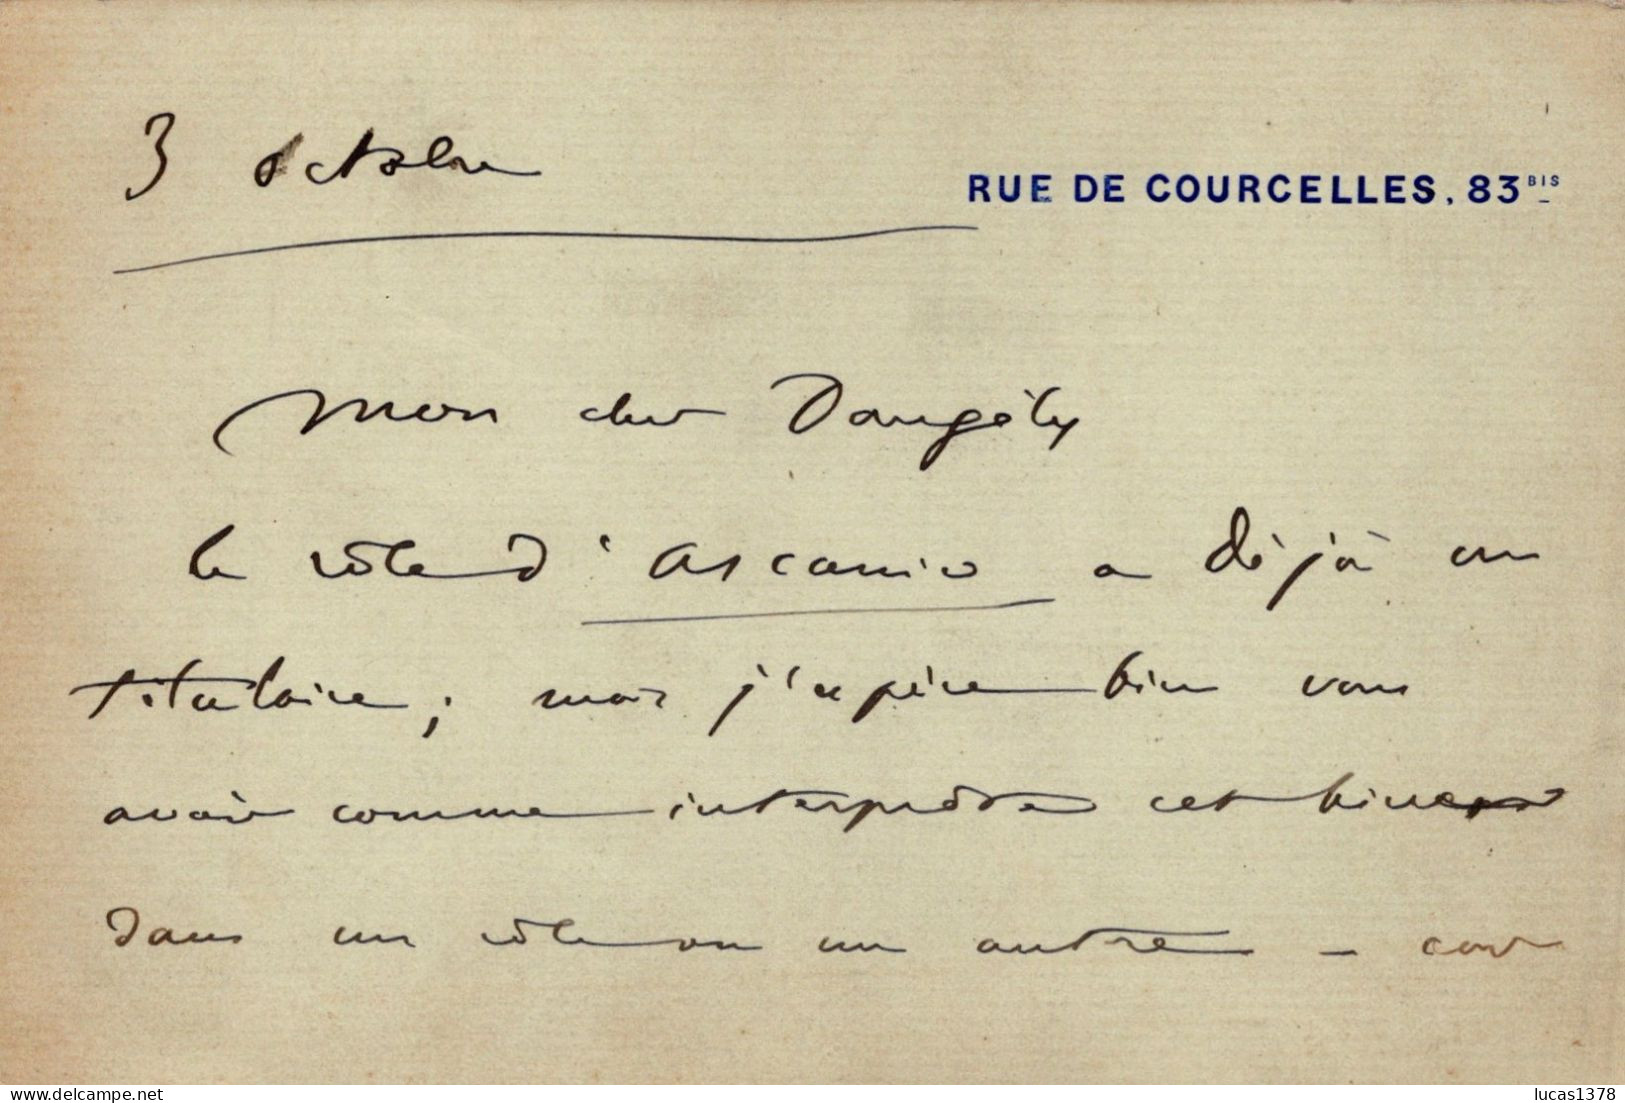 3 octobre
RUE DE COURCELLES, 83BIS
Mon cher Dangély
le rôle d'Ascanio a déjà un
titulaire ; mais j'espère bien vous
avoir comme interprète cet hiver
dans un rôle ou un autre - car
delcampe.net
lucas1378